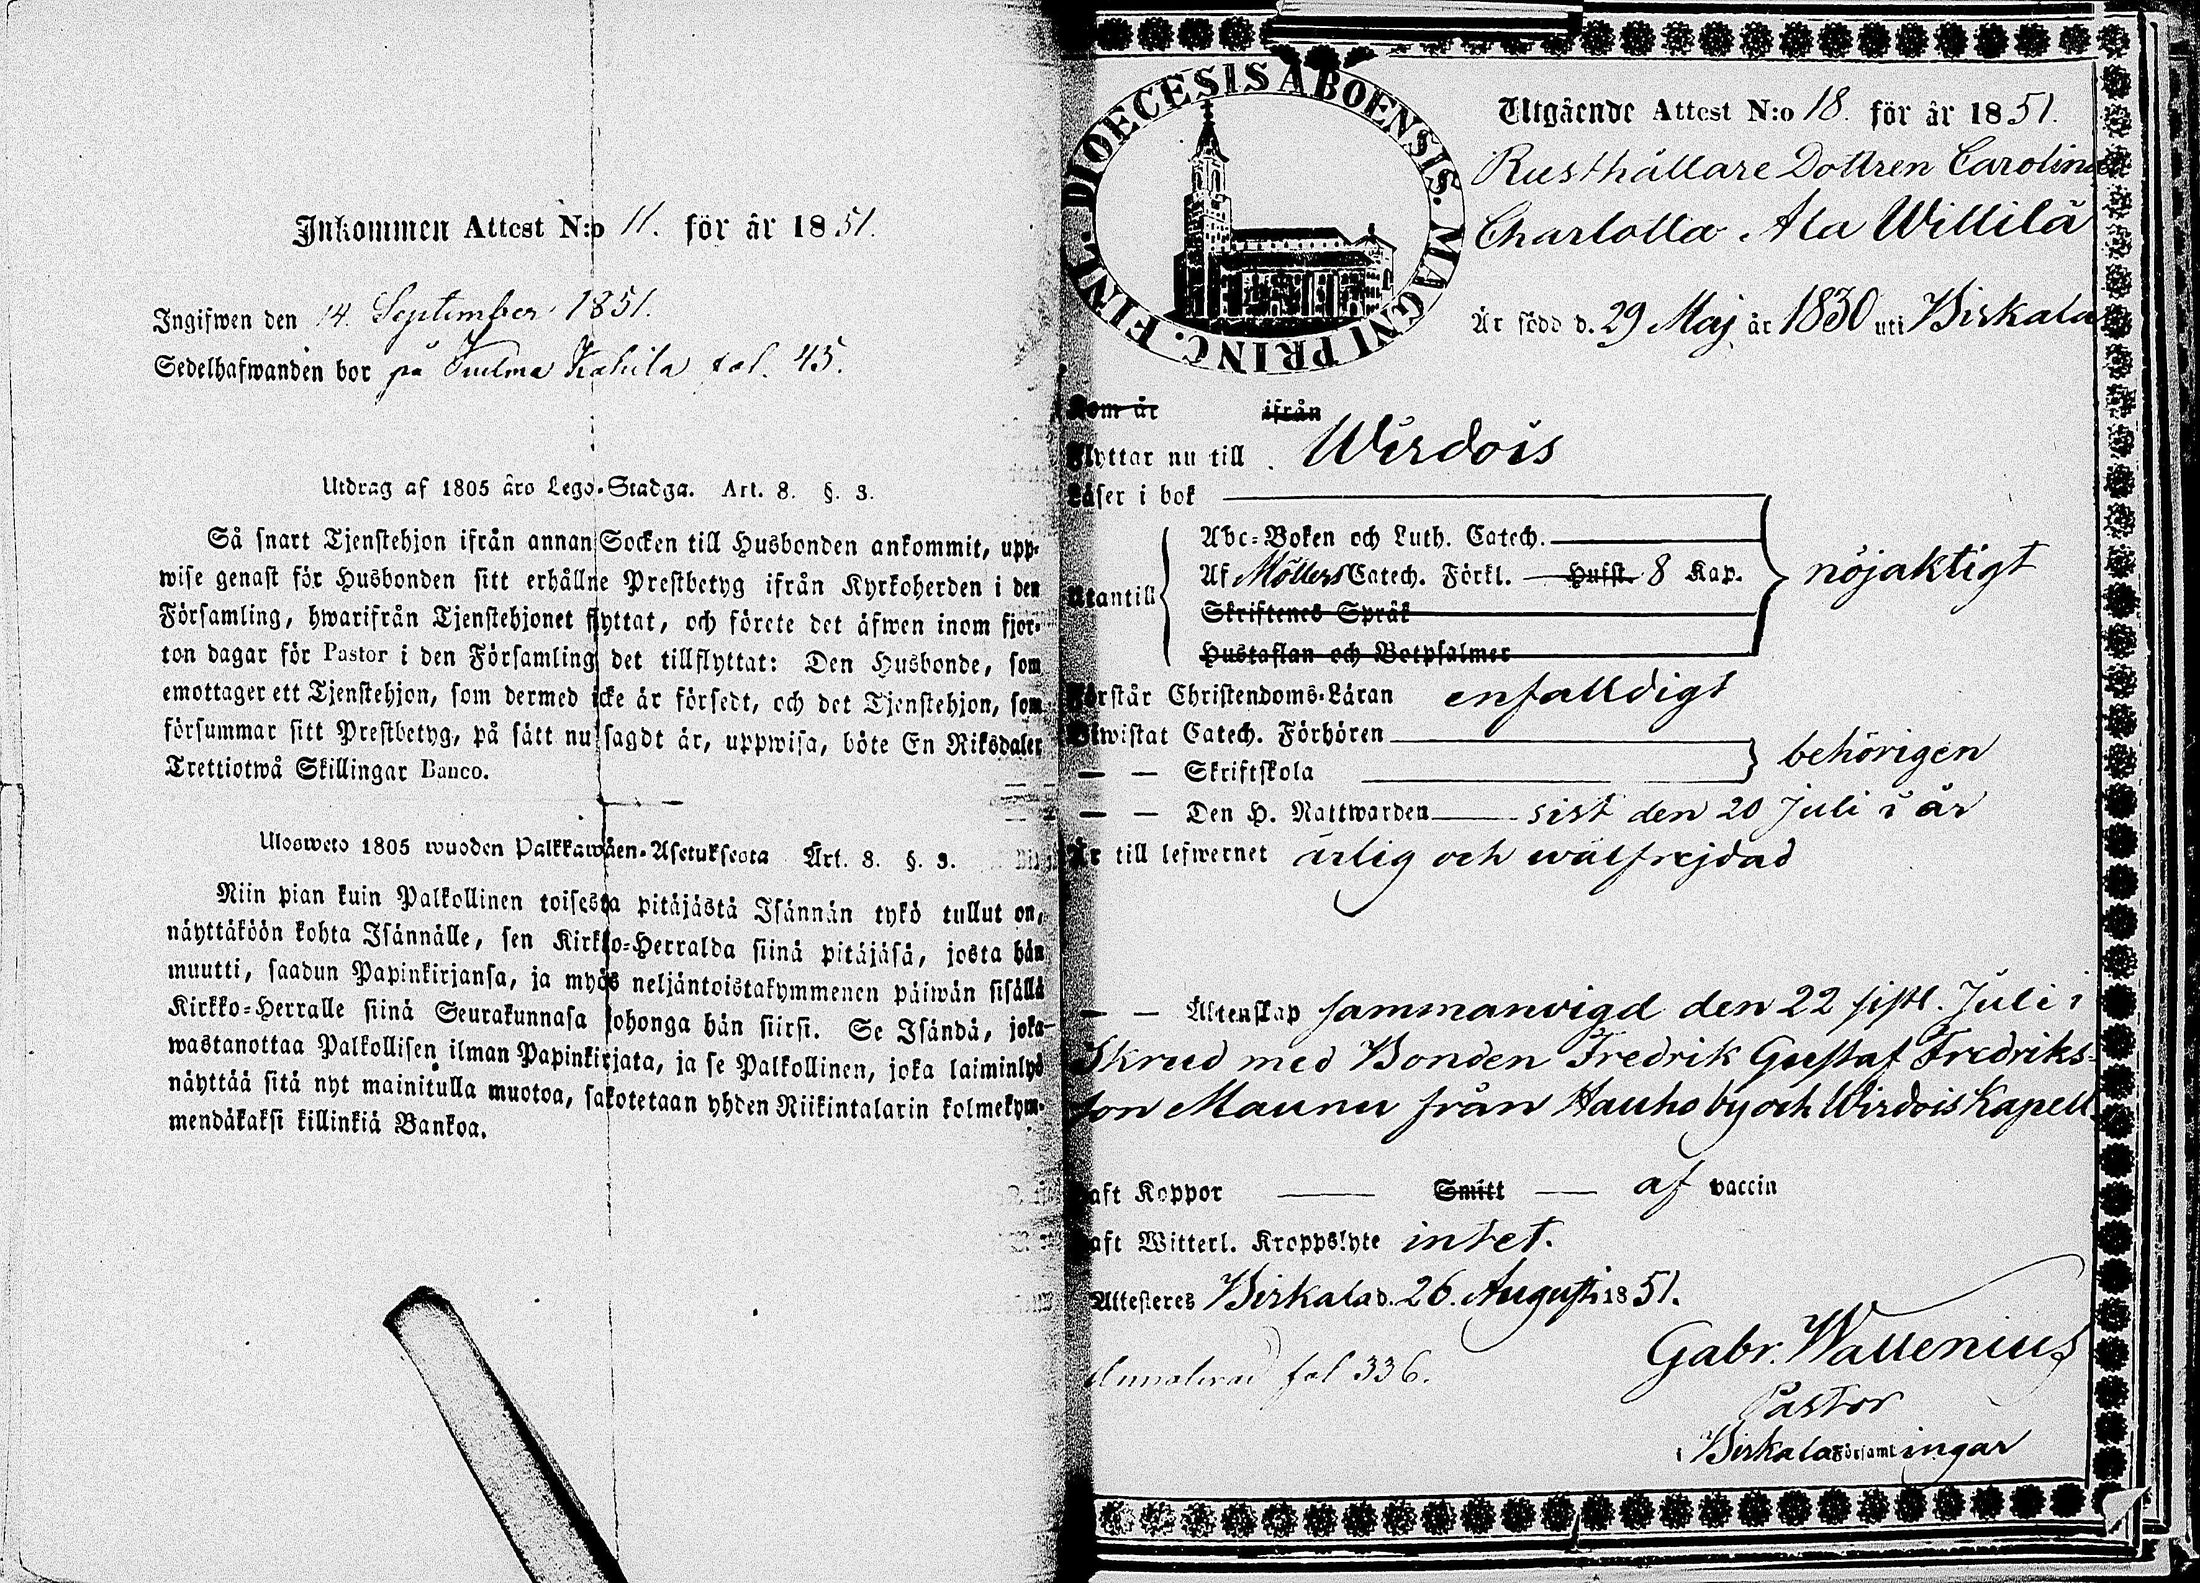 Inkommen Attest N:o 11. för år 1851.
Ingifwen den 14. September 1851.
Sedelhafwanden bor på Kahila fol. 45.
Utdrag af 1805 åro Lego-Stadga. Art. 8. §. 3.
Så snart Tjenstehjon ifrån annan Socken till Husbonden ankommit, upp-
wise genast för Husbonden sitt erhållne Prestbetyg ifrån Kyrkoherden i den
Församling, hwarifrån Tjenstehjonet flyttat, och förete det äfwen inom fjor-
ton dagar för Pastor i den Församling det tillflyttat: Den Husbonde, som
emottager ett Tjenstehjon, som dermed icke är försedt, och det Tjenstehjon, som
försummar sitt Prestbetyg, på sätt nu sagdt är, uppwisa, böte En Riksdaler
Trettiotwå Skillingar Banco.
Ulosweto 1805 wuoden Palkkawäen-Asetuksesta Art. 8. §. 3.
Niin pian kuin Palkollinen toisesta pitäjästä Isännän tykö tullut on,
näyttäköön kohta Isännälle, sen Kirkko-Herralda siinä pitäjäsä, josta hän
muutti, saadun Papinkirjansa, ja myös neljäntoistakymmenen päiwän sisällä
Kirkko-Herralle siinä Seurakunnasa johonga hän siirsi. Se Isändä, joka
wastanottaa Palkollisen ilman Papinkirjata, ja se Palkollinen, joka laiminlyö
näyttää sitä nyt mainitulla muotoa, sakotetaan yhden Riikintalarin kolmekym-
mendäkaksi killinkiä Bankoa.
DIOECESIS ÅBOENSIS. MAGNI PRINC. FINL.
Utgående Attest N:o 18. för år 1851.
Rusthållare Dottren Carolina
Charlotta Ala Willilä
Är född d. 29 Maj år 1830 uti Birkala
Kom år ifrån
Flyttar nu till Wirdois
Läser i bok
Abc-Boken och Luth. Catech.
Utantill Af Möllers Catech. Förkl. Hufst. 8 Kap. nöjaktigt
Skriftenes Språk
Hustaflan och Botpsalmer
Förstår Christendoms-Läran enfalldigt
Biwistat Catech. Förhören
— — Skriftskola behörigen
— — Den H. Nattwarden sist den 20 Juli i år
Är till lefwernet ärlig och wälfrejdad
— — Äktenskap sammanvigd den 22 sistl. Juli i
Skrud med Bonden Fredrik Gustaf Fredriks-
son Maunu från Hauho by och Wirdois Kapell
Haft Koppor — Smitt — af vaccin
Haft Witterl. Kroppslyte intet.
Attesteres Birkala d. 26. Augusti 1851.
fol 336.
Gabr. Wallenius
Pastor
i Birkala Församlingar